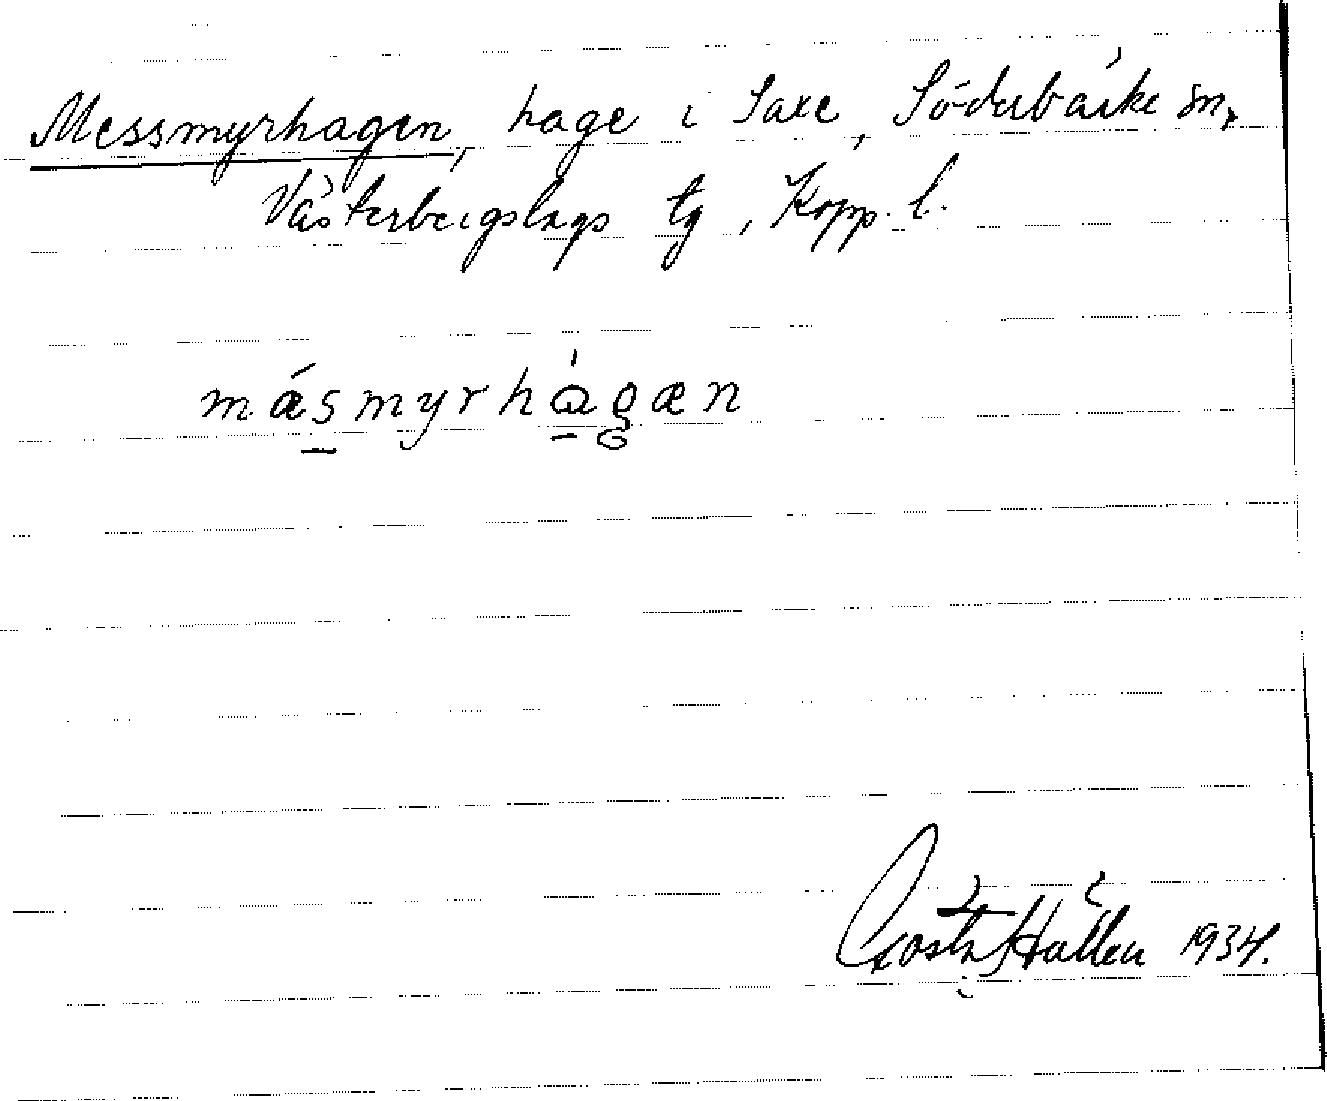 Messmyrhagen, hage i Saxe, Söderbärke sn,
Västerbergslags tg, Kopp. l.
mǽsmyrhágæn
Gösta Hällen 1934.